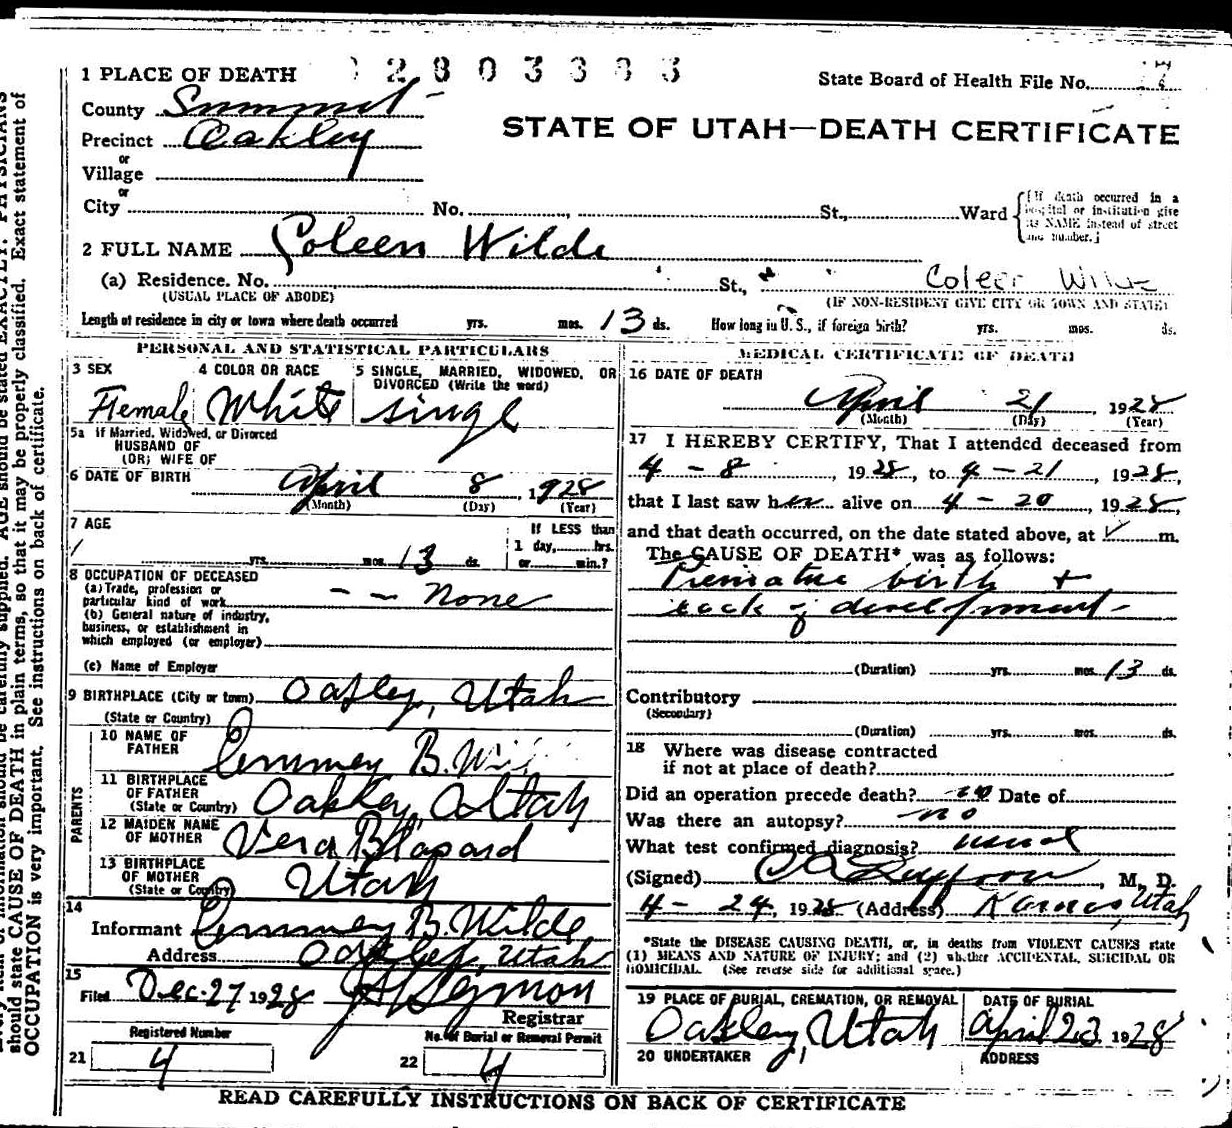 1 PLACE OF DEATH
State Board of Health File No.
County Summit
STATE OF UTAH—DEATH CERTIFICATE
Precinct Oakley
or
Village
or
City No. St., Ward
{If death occurred in a
hospital or institution give
its NAME instead of street
and number.}
2 FULL NAME Coleen Wilde
(a) Residence. No. St., Coleen Wilde
(USUAL PLACE OF ABODE) (IF NON-RESIDENT GIVE CITY OR TOWN AND STATE)
Length of residence in city or town where death occurred yrs. mos. 13 ds. How long in U. S., if foreign birth? yrs. mos. ds.
PERSONAL AND STATISTICAL PARTICULARS
3 SEX 4 COLOR OR RACE 5 SINGLE, MARRIED, WIDOWED, OR
DIVORCED (Write the word)
Female White single
5a If Married, Widowed, or Divorced
HUSBAND OF
(OR) WIFE OF
6 DATE OF BIRTH April 8, 1928
(Month) (Day) (Year)
7 AGE If LESS than
1 day, hrs.
yrs. mos. 13 ds. or min.?
8 OCCUPATION OF DECEASED
(a) Trade, profession or
particular kind of work -- None
(b) General nature of industry,
business, or establishment in
which employed (or employer)
(c) Name of Employer
9 BIRTHPLACE (City or town) Oakley, Utah
(State or Country)
PARENTS
10 NAME OF
FATHER B. Wil
11 BIRTHPLACE
OF FATHER
(State or Country) Oakley, Utah
12 MAIDEN NAME
OF MOTHER Vera Blazard
13 BIRTHPLACE
OF MOTHER
(State or Country) Utah
14
Informant B. Wilde
Address Oakley, Utah
15
Filed Dec. 27 1928
Registrar
Registered Number No. of Burial or Removal Permit
21 4 22 4
MEDICAL CERTIFICATE OF DEATH
16 DATE OF DEATH
April 21 1928
(Month) (Day) (Year)
17 I HEREBY CERTIFY, That I attended deceased from
4-8 1928, to 4-21, 1928,
that I last saw her alive on 4-20, 1928,
and that death occurred, on the date stated above, at m.
The CAUSE OF DEATH* was as follows:
Premature birth +
lack of development
(Duration) yrs. mos. 13 ds.
Contributory
(Secondary)
(Duration) yrs. mos. ds.
18 Where was disease contracted
if not at place of death?
Did an operation precede death? no Date of
Was there an autopsy? no
What test confirmed diagnosis? usual
(Signed) , M. D.
4-24, 1928 (Address) Kamas, Utah
*State the DISEASE CAUSING DEATH, or, in deaths from VIOLENT CAUSES state
(1) MEANS AND NATURE OF INJURY; and (2) whether ACCIDENTAL, SUICIDAL OR
HOMICIDAL. (See reverse side for additional space.)
19 PLACE OF BURIAL, CREMATION, OR REMOVAL DATE OF BURIAL
Oakley, Utah April 23 1928
20 UNDERTAKER ADDRESS
READ CAREFULLY INSTRUCTIONS ON BACK OF CERTIFICATE
should state CAUSE OF DEATH in plain terms, so that it may be properly classified. Exact statement of
OCCUPATION is very important. See instructions on back of certificate.